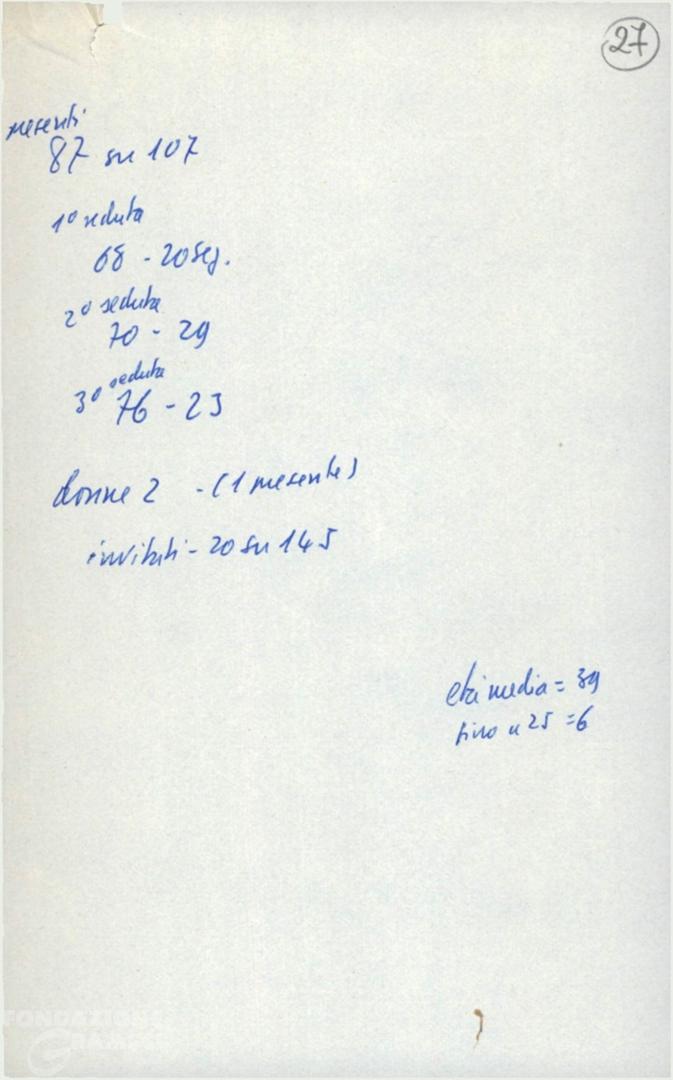 27
presenti
87 su 107
1° seduta
68 - 20 seg.
2° seduta
70 - 29
3° seduta
76 - 23
donne 2 - (1 presente)
invitati - 20 su 145
età media = 39
fino a 25 = 6
FONDAZIONE
GRAMSCI